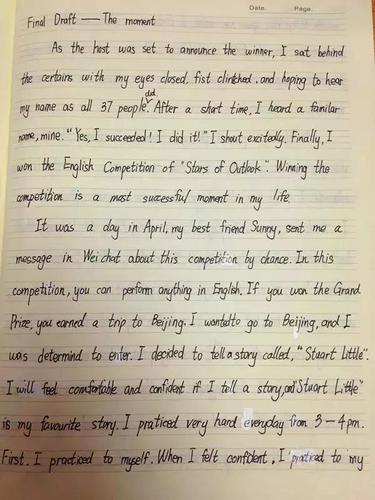 Date.      Page.
Final Draft — The moment
As the host was set to announce the winner, I sat behind
the certains with my eyes closed, fist clintched, and hoping to hear
my name as all 37 people did. After a short time, I heard a familar
name, mine. "Yes, I succeeded! I did it!" I shout excitedly. Finally, I
won the English Competition of "Stars of Outlook". Winning the
competition is a most successful moment in my life.
It was a day in April, my best friend Sunny, sent me a
message in Wei chat about this competition by chance. In this
competition, you can perform anything in English. If you won the Grand
Prize, you earned a trip to Beijing. I wanted to go to Beijing, and I
was determind to enter. I decided to tell a story called, "Stuart Little".
I will feel comfortable and confident if I tell a story, and "Stuart Little"
is my favourite story. I praticed very hard everyday from 3-4pm.
First. I practiced to myself. When I felt confident, I praticed to my